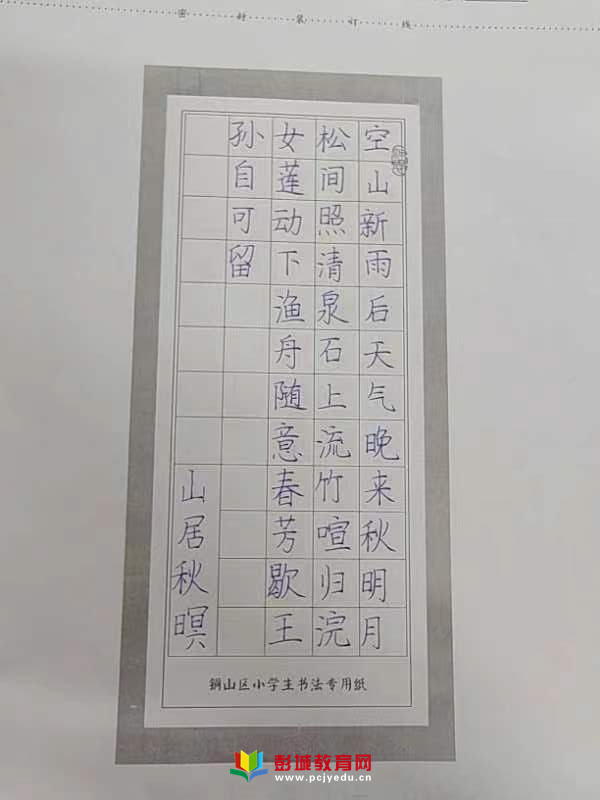 密封装订线
空山新雨后天气晚来秋明月
松间照清泉石上流竹喧归浣
女莲动下渔舟随意春芳歇王
孙自可留
山居秋暝
铜山区小学生书法专用纸
彭城教育网
www.pcjyedu.cn